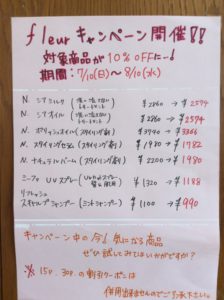 fleur キャンペーン開催!!
対象商品が 10% OFFにー!
期間：7/10(日)～8/10(水)
N. シアミルク (洗い流さない トリートメント) ¥2860 → ¥2574
N. シアオイル (洗い流さない トリートメント) ¥2860 → ¥2574
N. ポリッシュオイル (スタイリング剤) ¥3740 → ¥3366
N. スタイリングセラム (スタイリング剤) ¥1980 → ¥1782
N. ナチュラルバーム (スタイリング剤) ¥2200 → ¥1980
UVスプレー ¥1320 → ¥1188
リフレッシュ
スキャルプシャンプー (ミントシャンプー) ¥1100 → ¥990
キャンペーン中の今! 気になる商品
ぜひ試してみてはいかがですか?
※ 15p. 30p.の割引クーポンは
併用出来ませんのでご了承下さい。